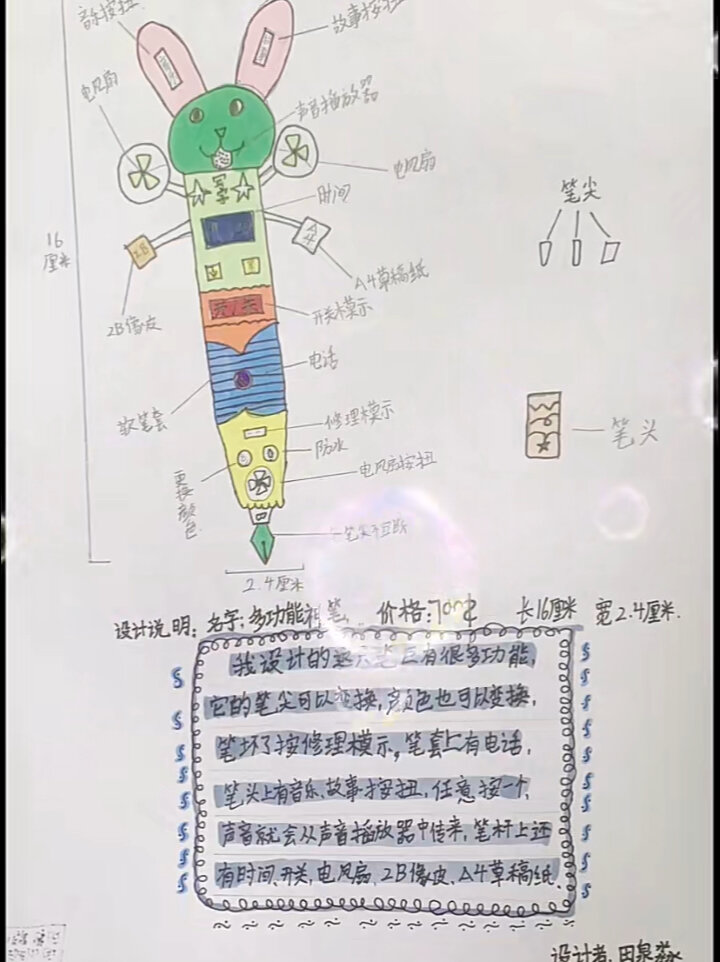 音乐按扭
故事按扭
电风扇
声音播放器
电风扇
时间
笔尖
16
厘米
2B
A4
A4草稿纸
2B像皮
开关模示
开/关
电话
软笔套
修理模示
笔头
防水
电风扇按扭
更换颜色
2.4厘米
设计说明:名字:多功能 笔 价格: 长16厘米 宽2.4厘米.
我设计的 有很多功能,
它的笔尖可以变换,颜色也可以变换,
笔坏了按修理模示,笔套上有电话,
笔头上有音乐、故事按扭,任意按一个,
声音就会从声音播放器中传来,笔杆上还
有时间、开关,电风扇、2B像皮、A4草稿纸.
设计者:田泉